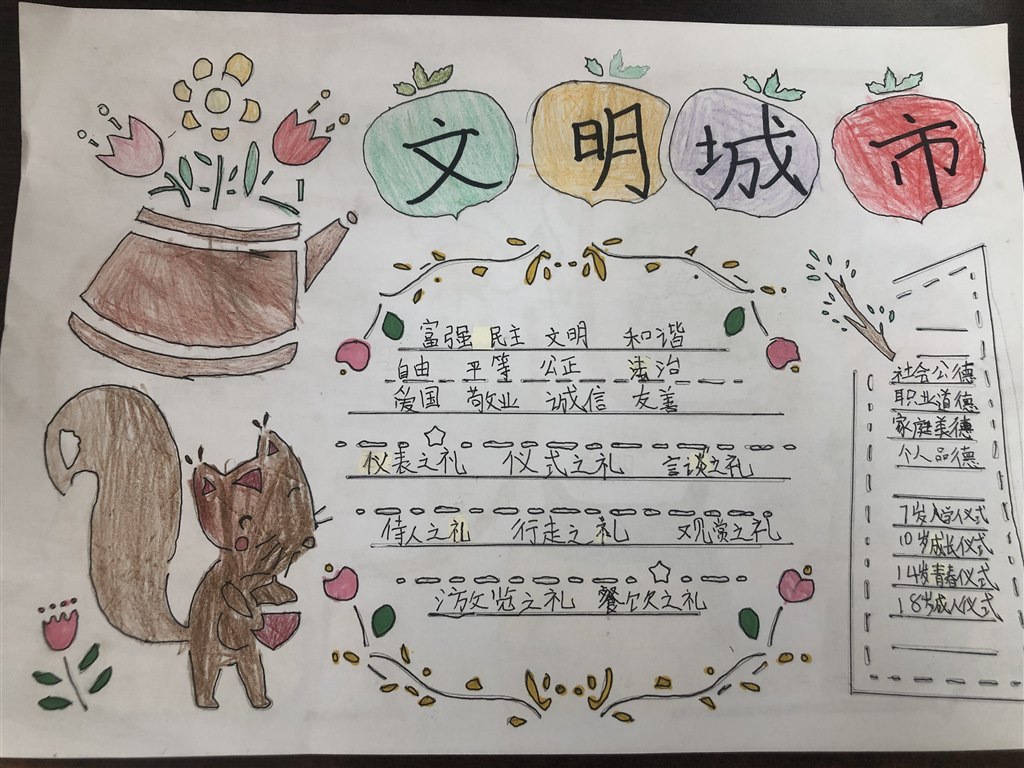 文明城市
富强 民主 文明 和谐
自由 平等 公正 法治
爱国 敬业 诚信 友善
仪表之礼 仪式之礼 言谈之礼
待人之礼 行走之礼 观赏之礼
游览之礼 餐饮之礼
社会公德
职业道德
家庭美德
个人品德
7岁入学仪式
10岁成长仪式
14岁青春仪式
18岁成人仪式